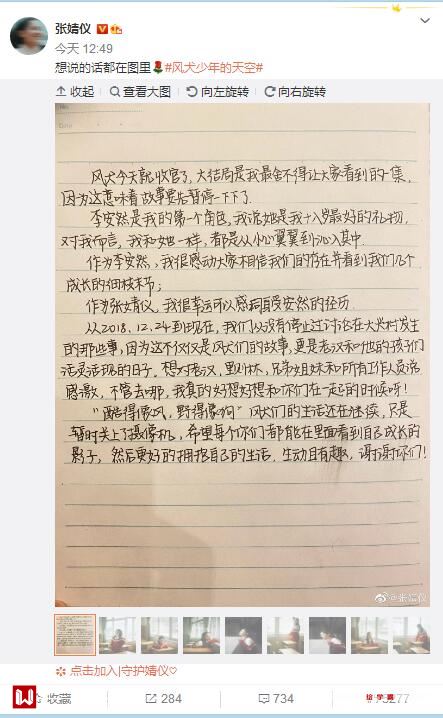 张婧仪
今天 12:49
想说的话都在图里🌹#风犬少年的天空#
收起 查看大图 向左旋转 向右旋转
No.
Date
风犬今天就收官了，大结局是我最舍不得让大家看到的一集，
因为这意味着故事要告暂停一下下了.
李安然是我的第一个角色，我说她是我十八岁最好的礼物，
对我而言，我和她一样，都是从小心翼翼到沁入其中.
作为李安然，我很感动大家相信我们的存在并看到我们几个
成长的细枝末节；
作为张婧仪，我很幸运可以感同身受安然的经历.
从2018.12.24到现在，我们从没有停止过讨论在大兴村发生
的那些事，因为这不仅仅是风犬们的故事，更是老汉和他的孩子们
活灵活现的日子，想对老汉，里则林，兄弟姐妹和所有工作人员说
感激，不管去哪，我真的好想好想和你们在一起的时候呀！
“酷得像风，野得像狗”风犬们的生活还在继续，只是
暂时关上了摄像机，希望每个你们都能在里面看到自己成长的
影子，然后更好的拥抱自己的生活，生动且有趣，谢谢你们！
@张婧仪
点击加入|守护婧仪♡
收藏 284 734 73277
拾学霸